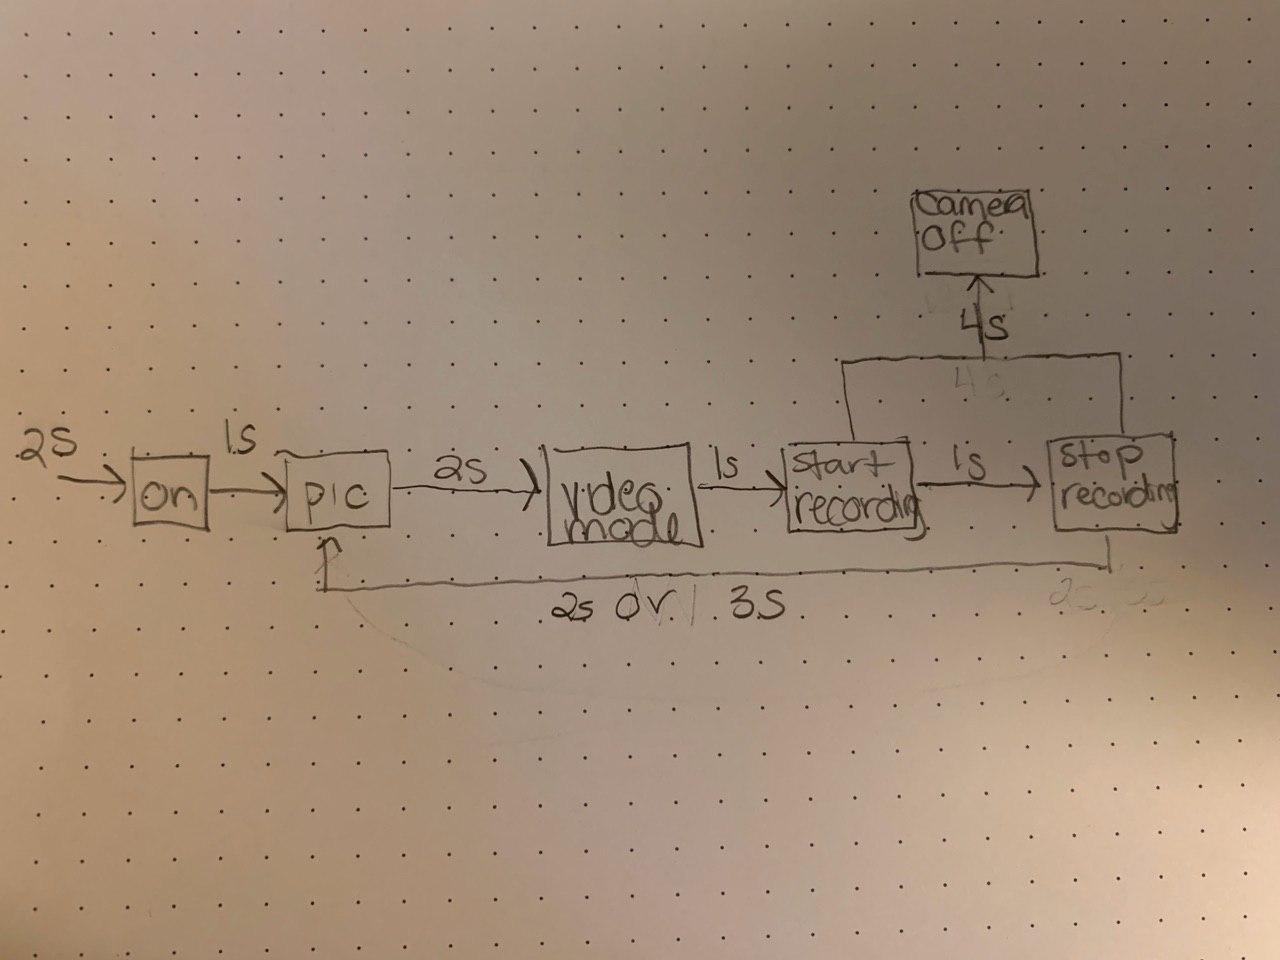 camera
off
4s
4s
2s
1s
on
pic
2s
video
mode
1s
start
recording
1s
stop
recording
2s or 3s
2s